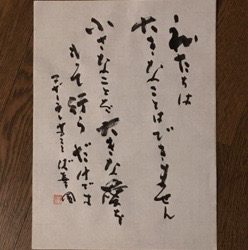 私たちは
大きなことはできません
小さなことを大きな愛を
もって行うだけです
マザーテレサ